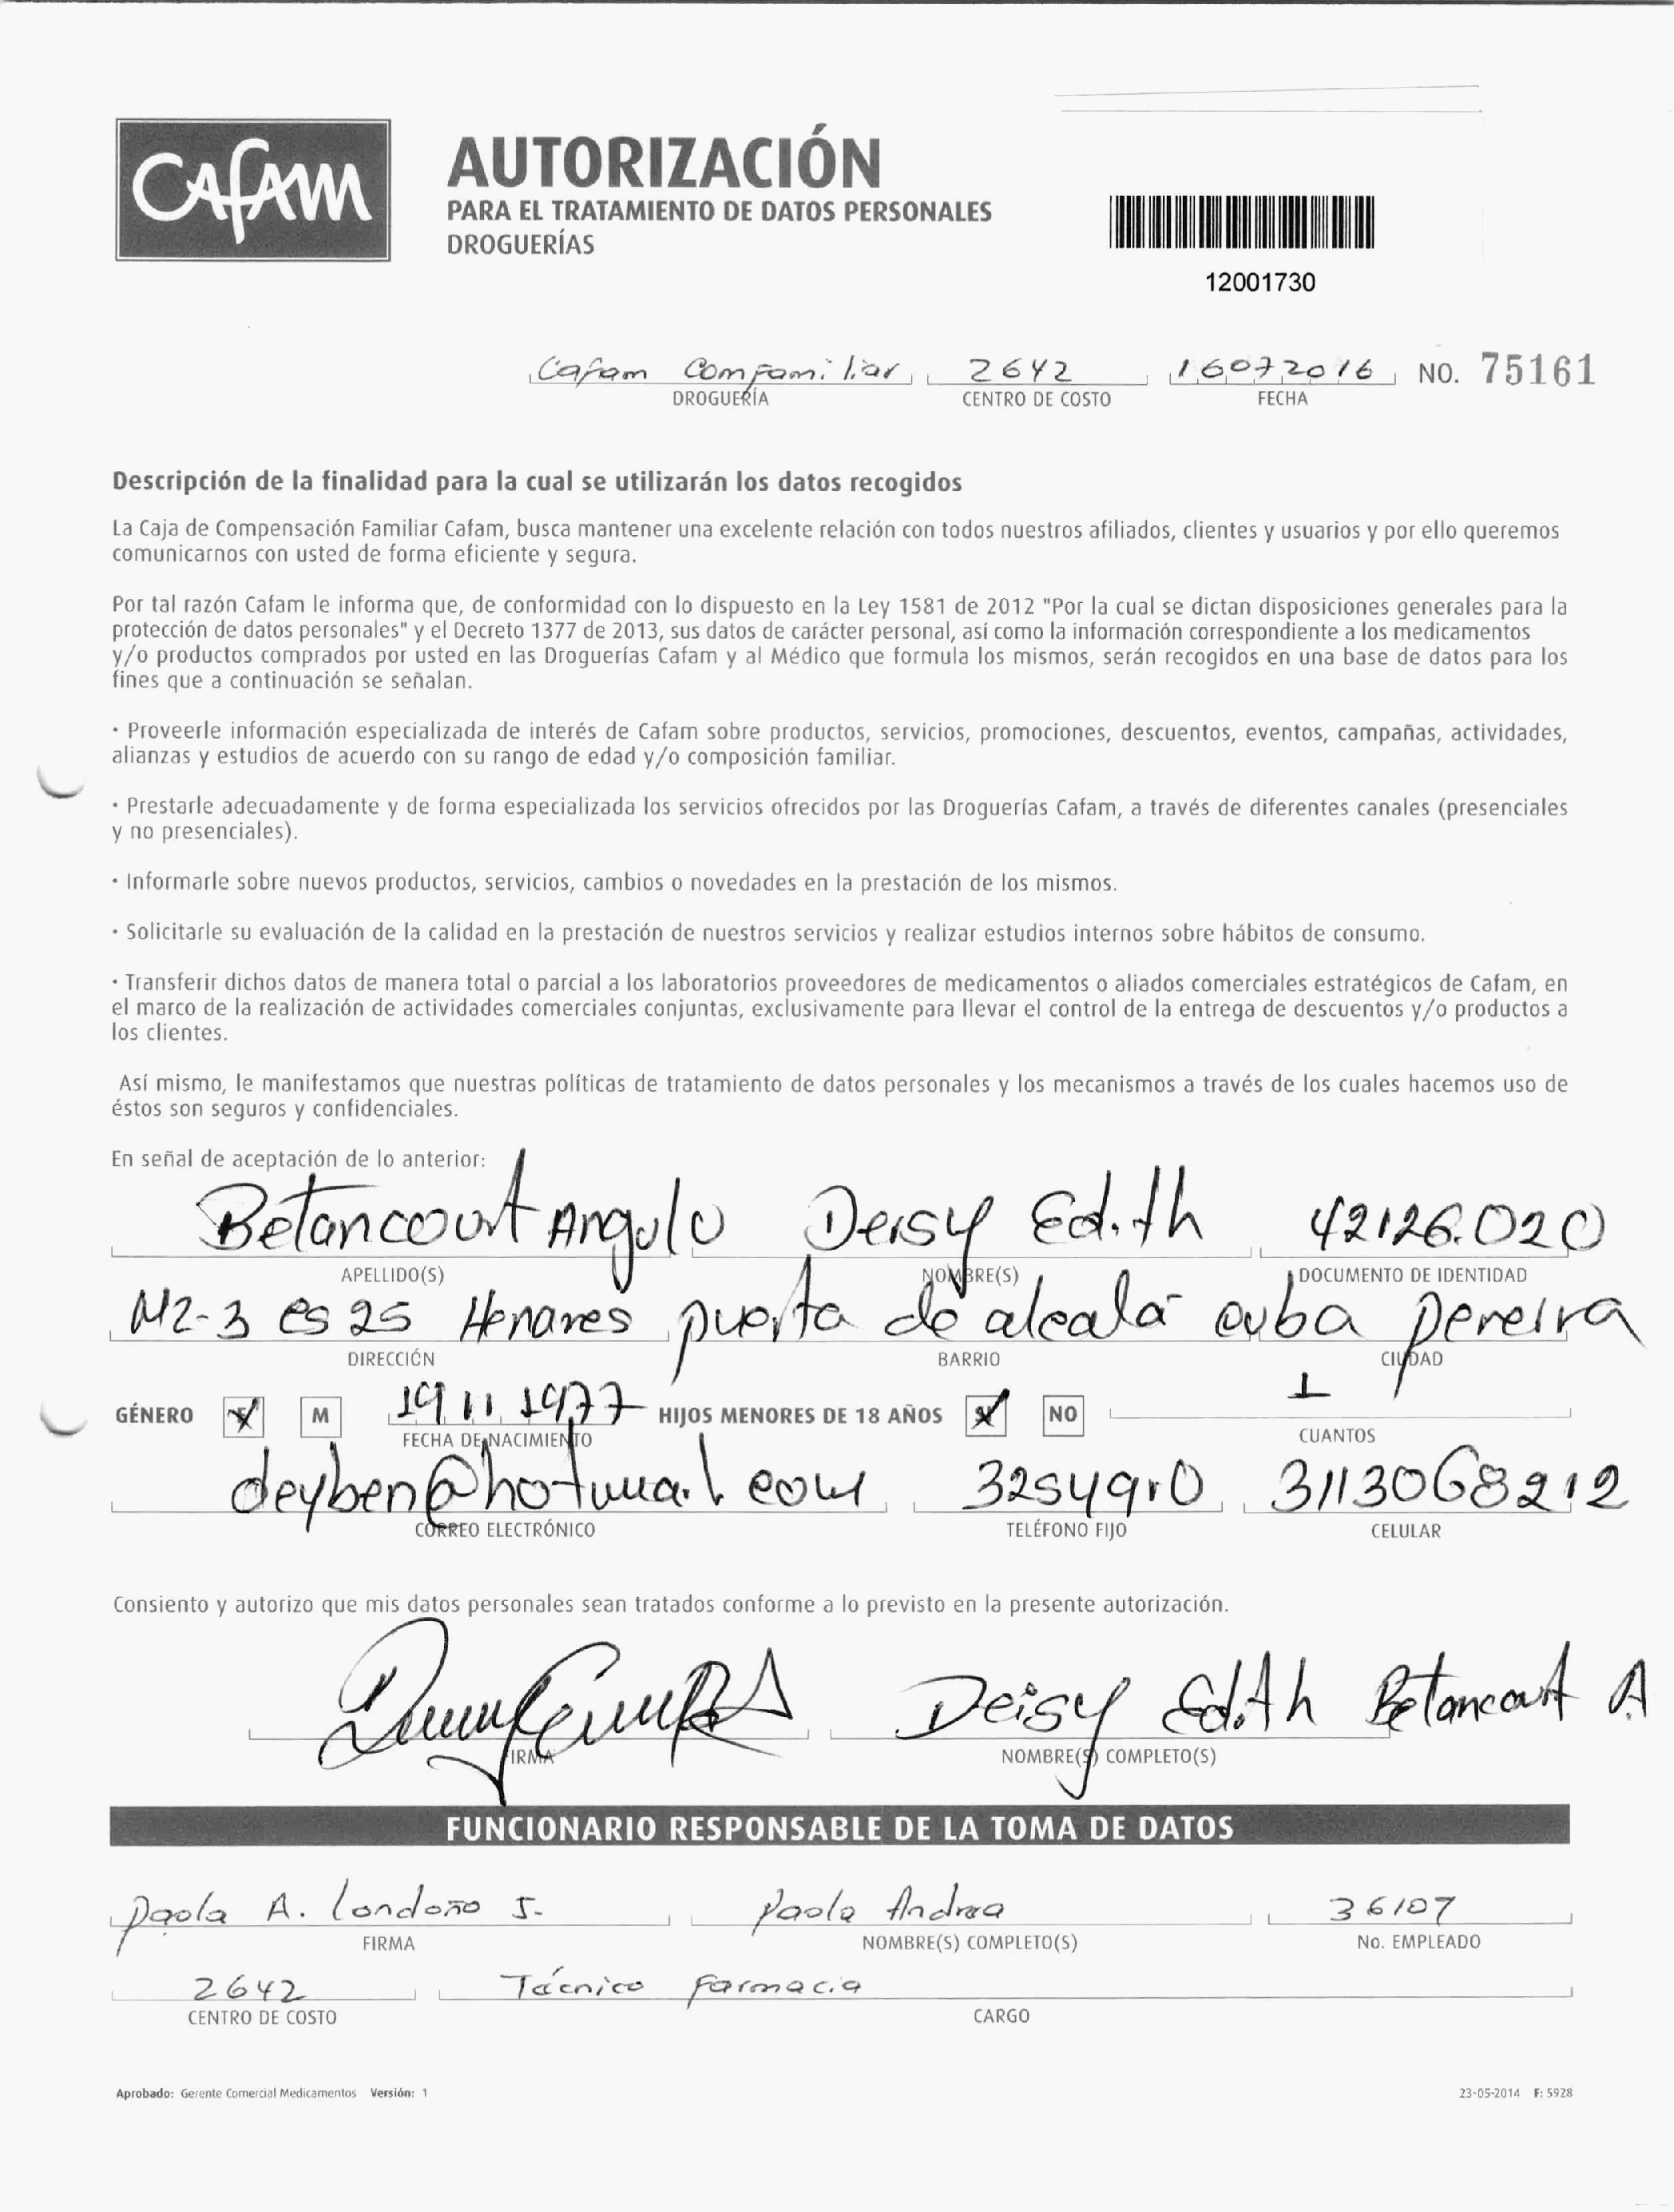 CAFAM
AUTORIZACIÓN
PARA EL TRATAMIENTO DE DATOS PERSONALES
DROGUERÍAS
12001730
Cafam Comfamiliar 2642 16072016 NO. 75161
DROGUERÍA CENTRO DE COSTO FECHA
Descripción de la finalidad para la cual se utilizarán los datos recogidos
La Caja de Compensación Familiar Cafam, busca mantener una excelente relación con todos nuestros afiliados, clientes y usuarios y por ello queremos
comunicarnos con usted de forma eficiente y segura.
Por tal razón Cafam le informa que, de conformidad con lo dispuesto en la Ley 1581 de 2012 "Por la cual se dictan disposiciones generales para la
protección de datos personales" y el Decreto 1377 de 2013, sus datos de carácter personal, así como la información correspondiente a los medicamentos
y/o productos comprados por usted en las Droguerías Cafam y al Médico que formula los mismos, serán recogidos en una base de datos para los
fines que a continuación se señalan.
· Proveerle información especializada de interés de Cafam sobre productos, servicios, promociones, descuentos, eventos, campañas, actividades,
alianzas y estudios de acuerdo con su rango de edad y/o composición familiar.
· Prestarle adecuadamente y de forma especializada los servicios ofrecidos por las Droguerías Cafam, a través de diferentes canales (presenciales
y no presenciales).
· Informarle sobre nuevos productos, servicios, cambios o novedades en la prestación de los mismos.
· Solicitarle su evaluación de la calidad en la prestación de nuestros servicios y realizar estudios internos sobre hábitos de consumo.
· Transferir dichos datos de manera total o parcial a los laboratorios proveedores de medicamentos o aliados comerciales estratégicos de Cafam, en
el marco de la realización de actividades comerciales conjuntas, exclusivamente para llevar el control de la entrega de descuentos y/o productos a
los clientes.
Así mismo, le manifestamos que nuestras políticas de tratamiento de datos personales y los mecanismos a través de los cuales hacemos uso de
éstos son seguros y confidenciales.
En señal de aceptación de lo anterior:
Betancourt Angulo Deisy Edith 42126.020
APELLIDO(S) NOMBRE(S) DOCUMENTO DE IDENTIDAD
Mz-3 cs 25 Henares puerta de alcalá cuba pereira
DIRECCIÓN BARRIO CIUDAD
GÉNERO F M 19 11 1977 HIJOS MENORES DE 18 AÑOS SI NO 1
FECHA DE NACIMIENTO CUANTOS
deyben@hotmail.com 3113068212
CORREO ELECTRÓNICO TELÉFONO FIJO CELULAR
Consiento y autorizo que mis datos personales sean tratados conforme a lo previsto en la presente autorización.
Deisy Edith Betancourt A
FIRMA NOMBRE(S) COMPLETO(S)
FUNCIONARIO RESPONSABLE DE LA TOMA DE DATOS
Paola A. Londoño J. Paola Andrea 36107
FIRMA NOMBRE(S) COMPLETO(S) No. EMPLEADO
2642 Técnico Farmacia
CENTRO DE COSTO CARGO
Aprobado: Gerente Comercial Medicamentos Versión: 1 23-05-2014 F: 5928